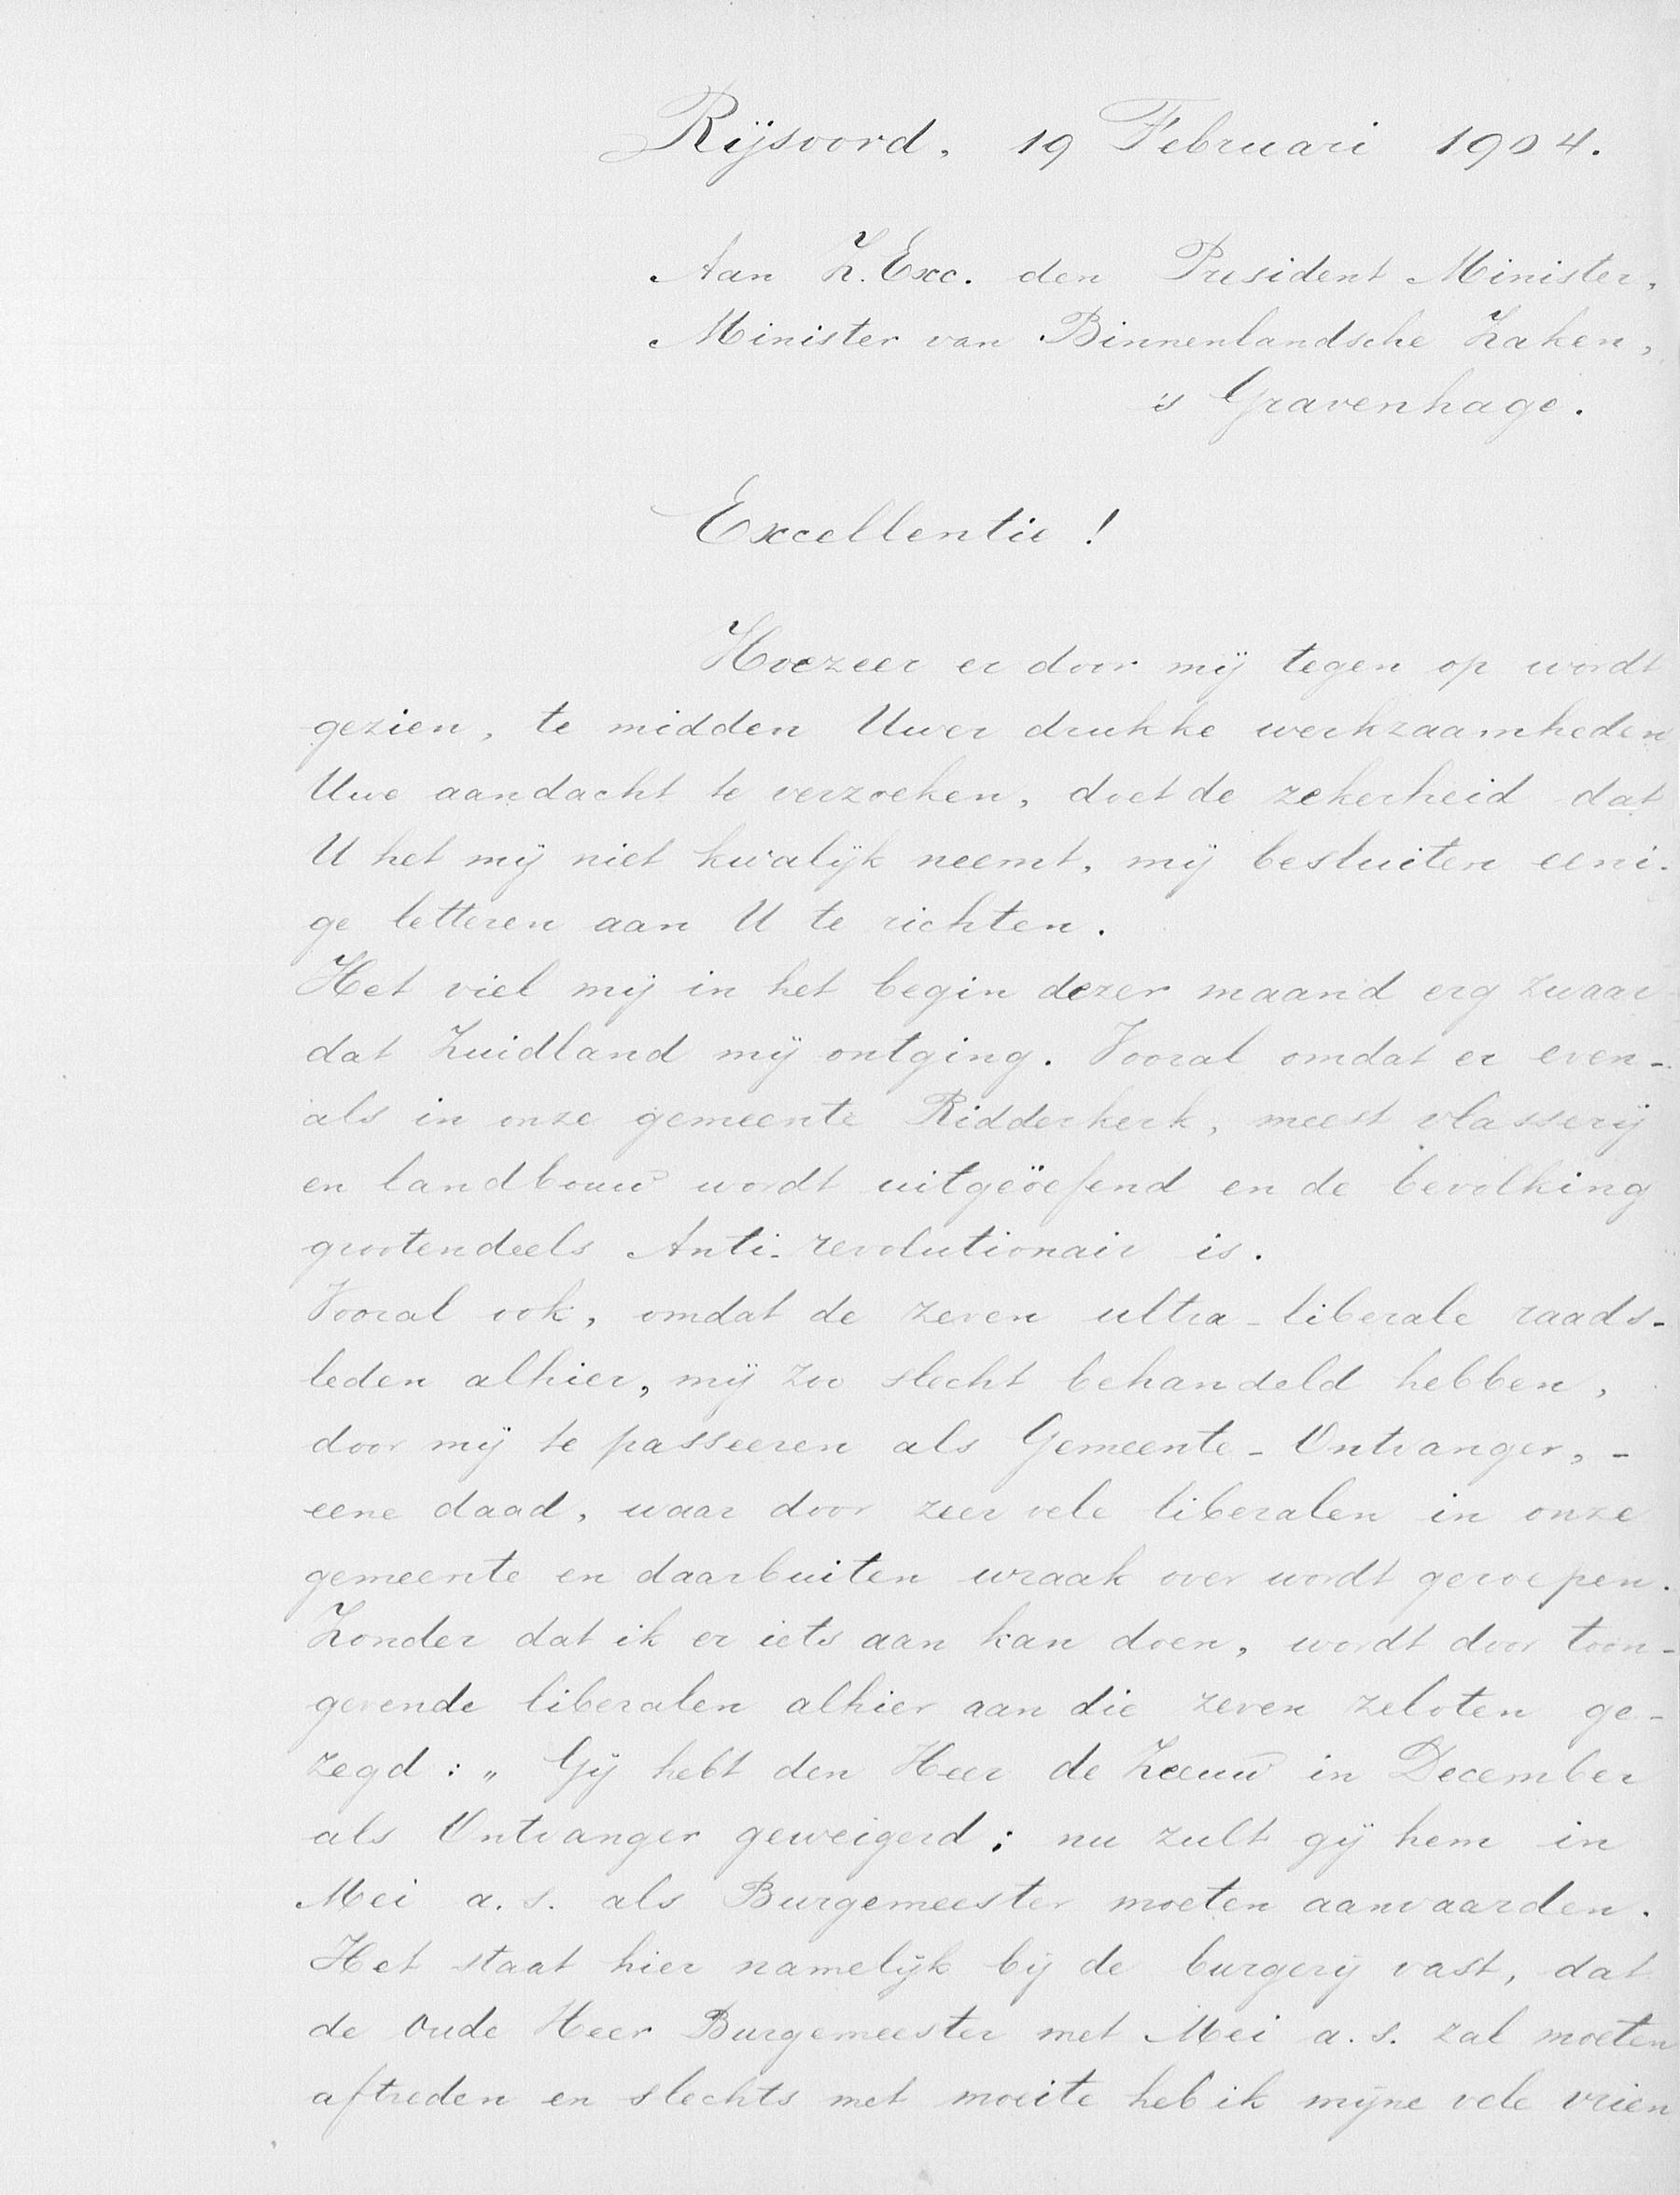 Rijsoord, 19 Februari 1904.
Aan Z. Exc. den President Minister,
Minister van Binnenlandsche Zaken,
's Gravenhage.
Excellentie !
Hoezeer er door mij tegen op wordt
gezien, te midden Uwer drukke werkzaamheden
Uwe aandacht te verzoeken, doet de zekerheid dat
U het mij niet kwalijk neemt, mij besluiten eeni-
ge letteren aan U te richten.
Het viel mij in het begin dezer maand erg zwaar
dat Zuidland mij ontging. Vooral omdat er even-
als in onze gemeente Ridderkerk, meest vlasserij
en landbouw wordt uitgeöefend en de bevolking
grootendeels Anti-revolutionair is.
Vooral ook, omdat de zeven ultra-liberale raads-
leden alhier, mij zoo slecht behandeld hebben,
door mij te passeeren als Gemeente-Ontvanger, -
eene daad, waar door zeer vele liberalen in onze
gemeente en daarbuiten wraak over wordt geroepen.
Zonder dat ik er iets aan kan doen, wordt door toon-
gevende liberalen alhier aan die zeven zeloten ge-
zegd : „ Gij hebt den Heer de Zeeuw in December
als Ontvanger geweigerd ; nu zult gij hem in
Mei a. s. als Burgemeester moeten aanvaarden.
Het staat hier namelijk bij de burgerij vast, dat
de oude Heer Burgemeester met Mei a. s. zal moeten
aftreden en slechts met moeite heb ik mijne vele vrien